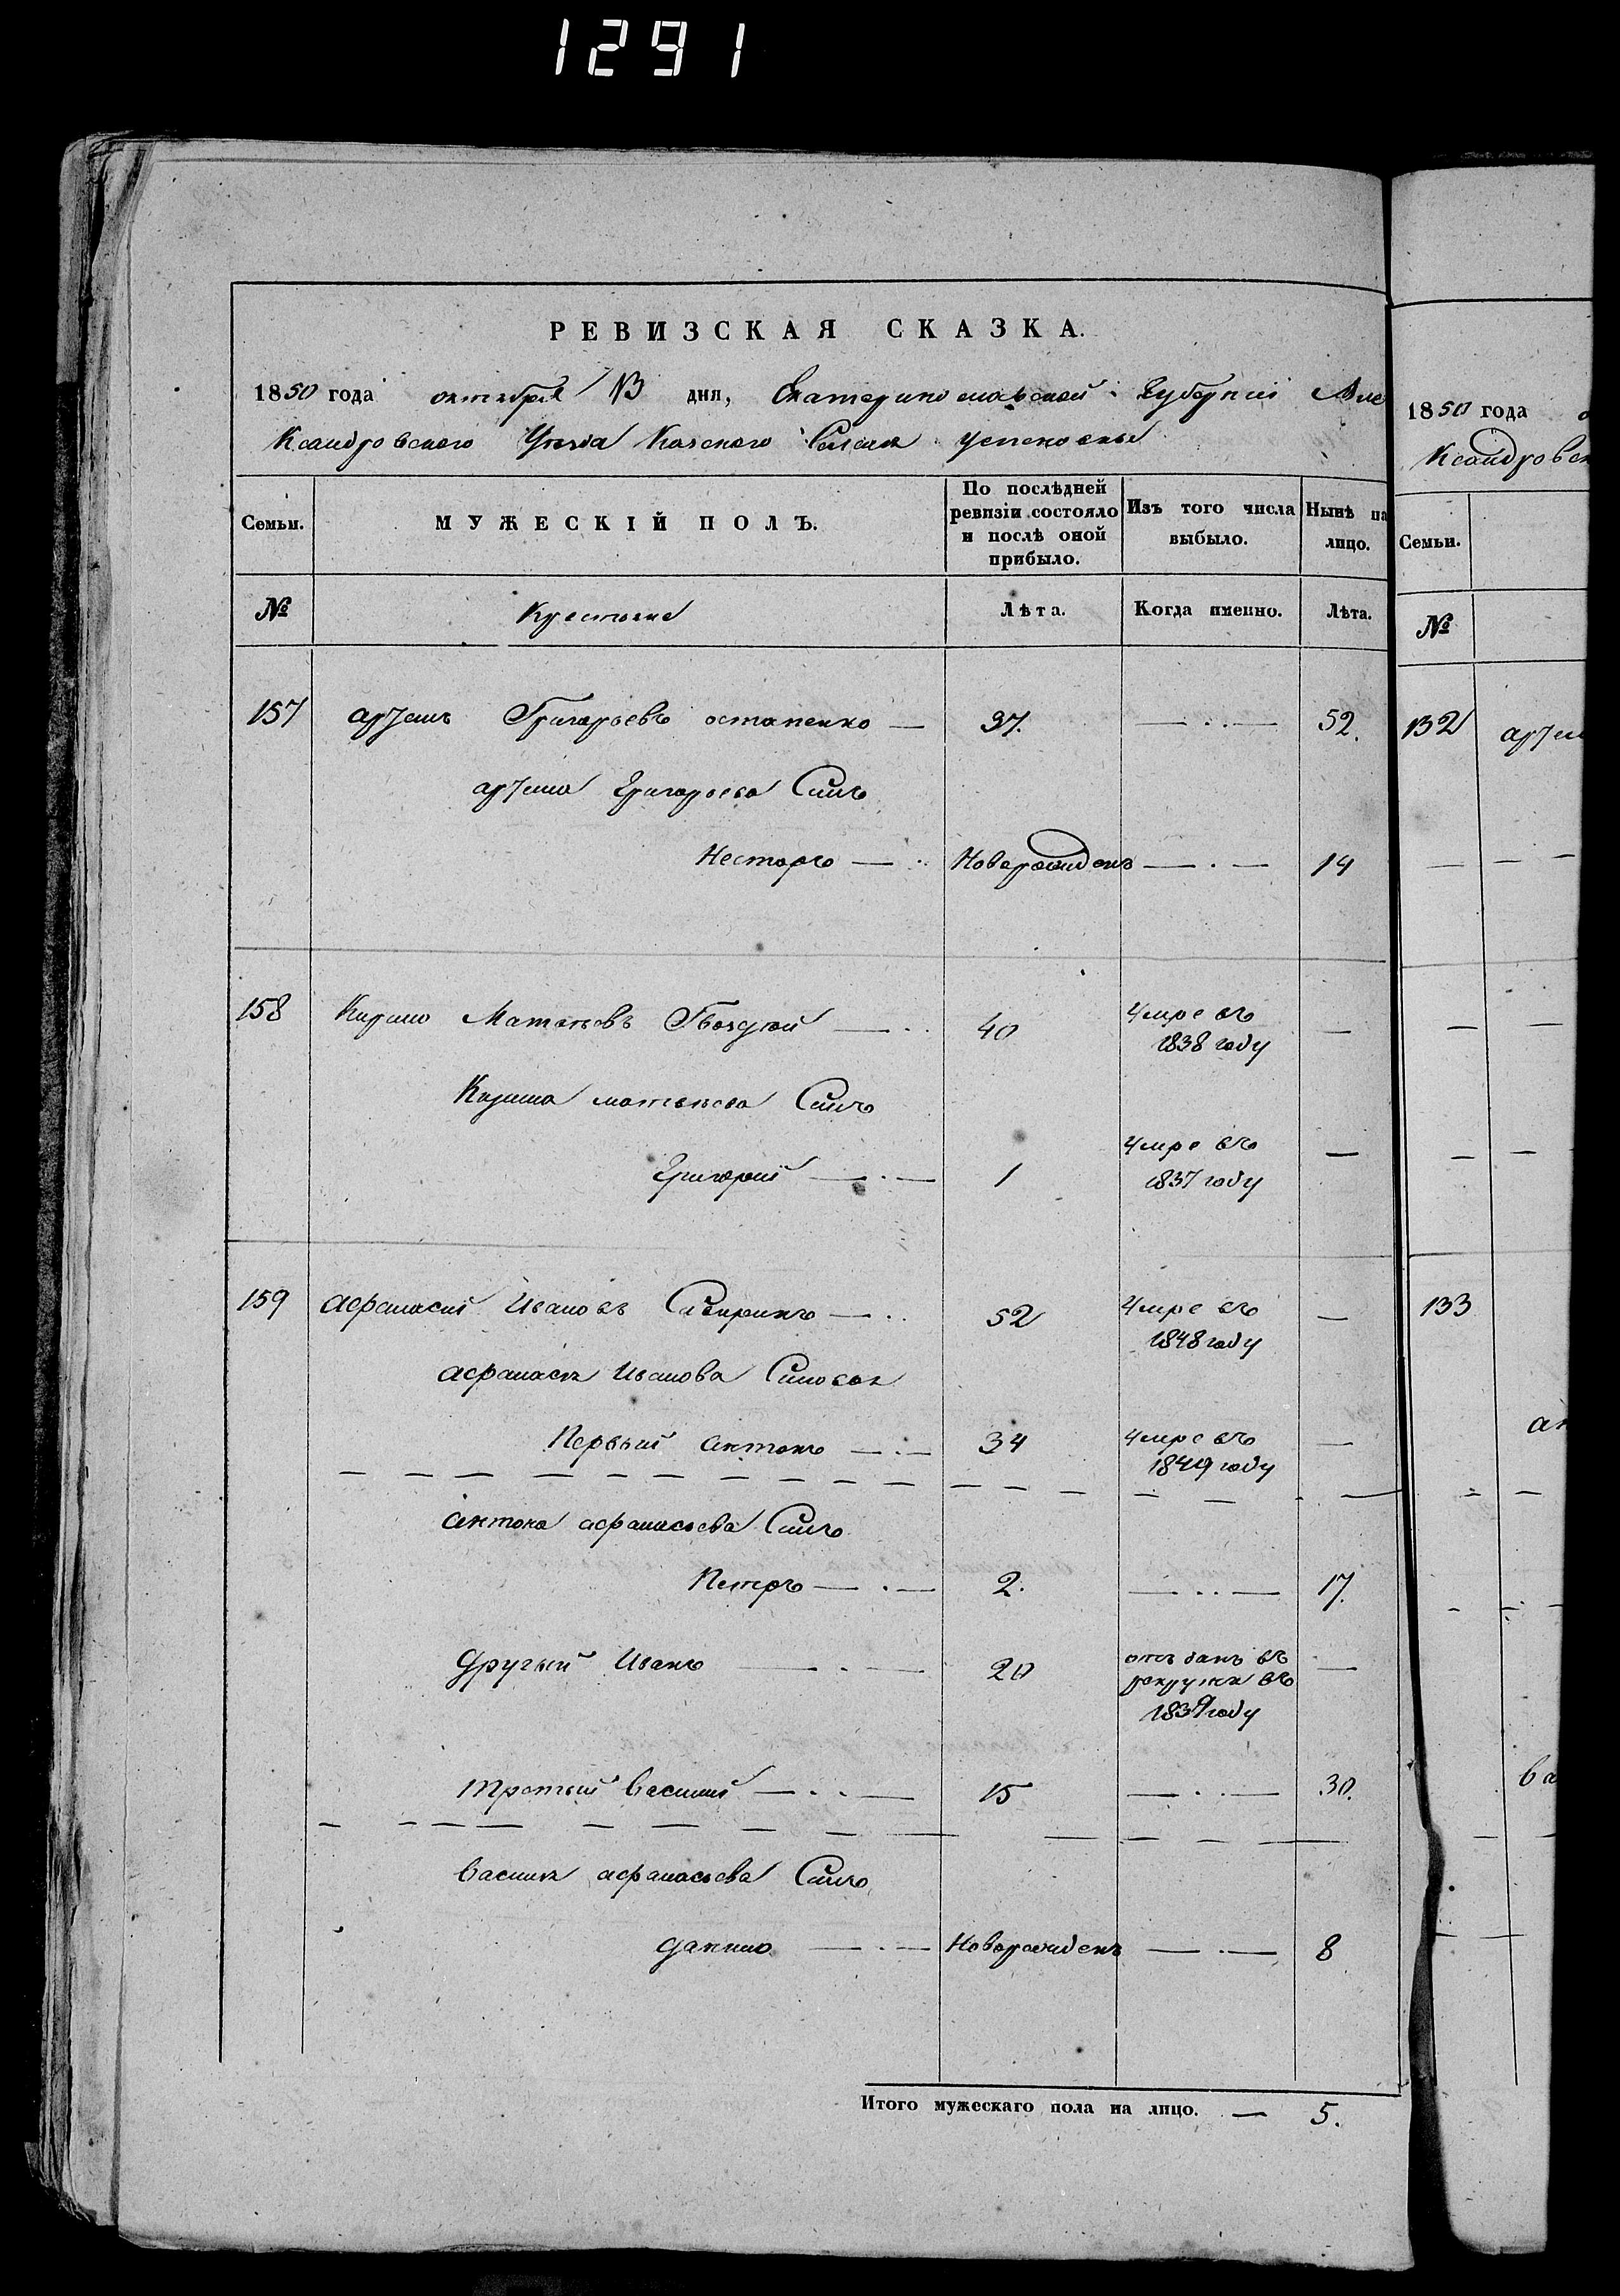 1291
РЕВИЗСКАЯ СКАЗКА.
1850 года октября 13 дня, Екатеринославской Губернии Але
ксандровского Уезда Казеного Селенія Успеновки
Семьи. МУЖЕСКІЙ ПОЛЪ. По послѣдней ревизіи состояло и послѣ оной прибыло. Изъ того числа выбыло. Нынѣ на лицо.
№ Крестьяне Лѣта. Когда именно. Лѣта.
157 Артемъ Григорьевъ Остапенко — 37. — . . — 52.
Артема Григорьева Сынъ
Несторъ — . . Новорожденъ — . — 14
158 Кирило Матвѣевъ — . . 40 Умре въ 1838 году —
Кирила Матвѣева Сынъ
Григорій — . — 1 Умре въ 1837 году —
159 Афанасій Ивановъ — . . 52 Умре въ 1848 году —
Афанасія Иванова Сыновья
Первый Антонъ — . — 34 Умре въ 1849 году —
Антона Афанасьева Сынъ
Петръ — . — 2. — . . — 17.
Другий Иванъ — . . — 20 отъданъ въ рекруты въ 1839 году —
Третый Василий — . . — 15 — . . — 30.
Василя Афанасьева Сынъ
Данило — . — Новорожденъ — . — 8
Итого мужескаго пола на лицо. — 5.
1850 года о
ксандровск
Семьи.
№
132 Артем
133
Ан
Ва